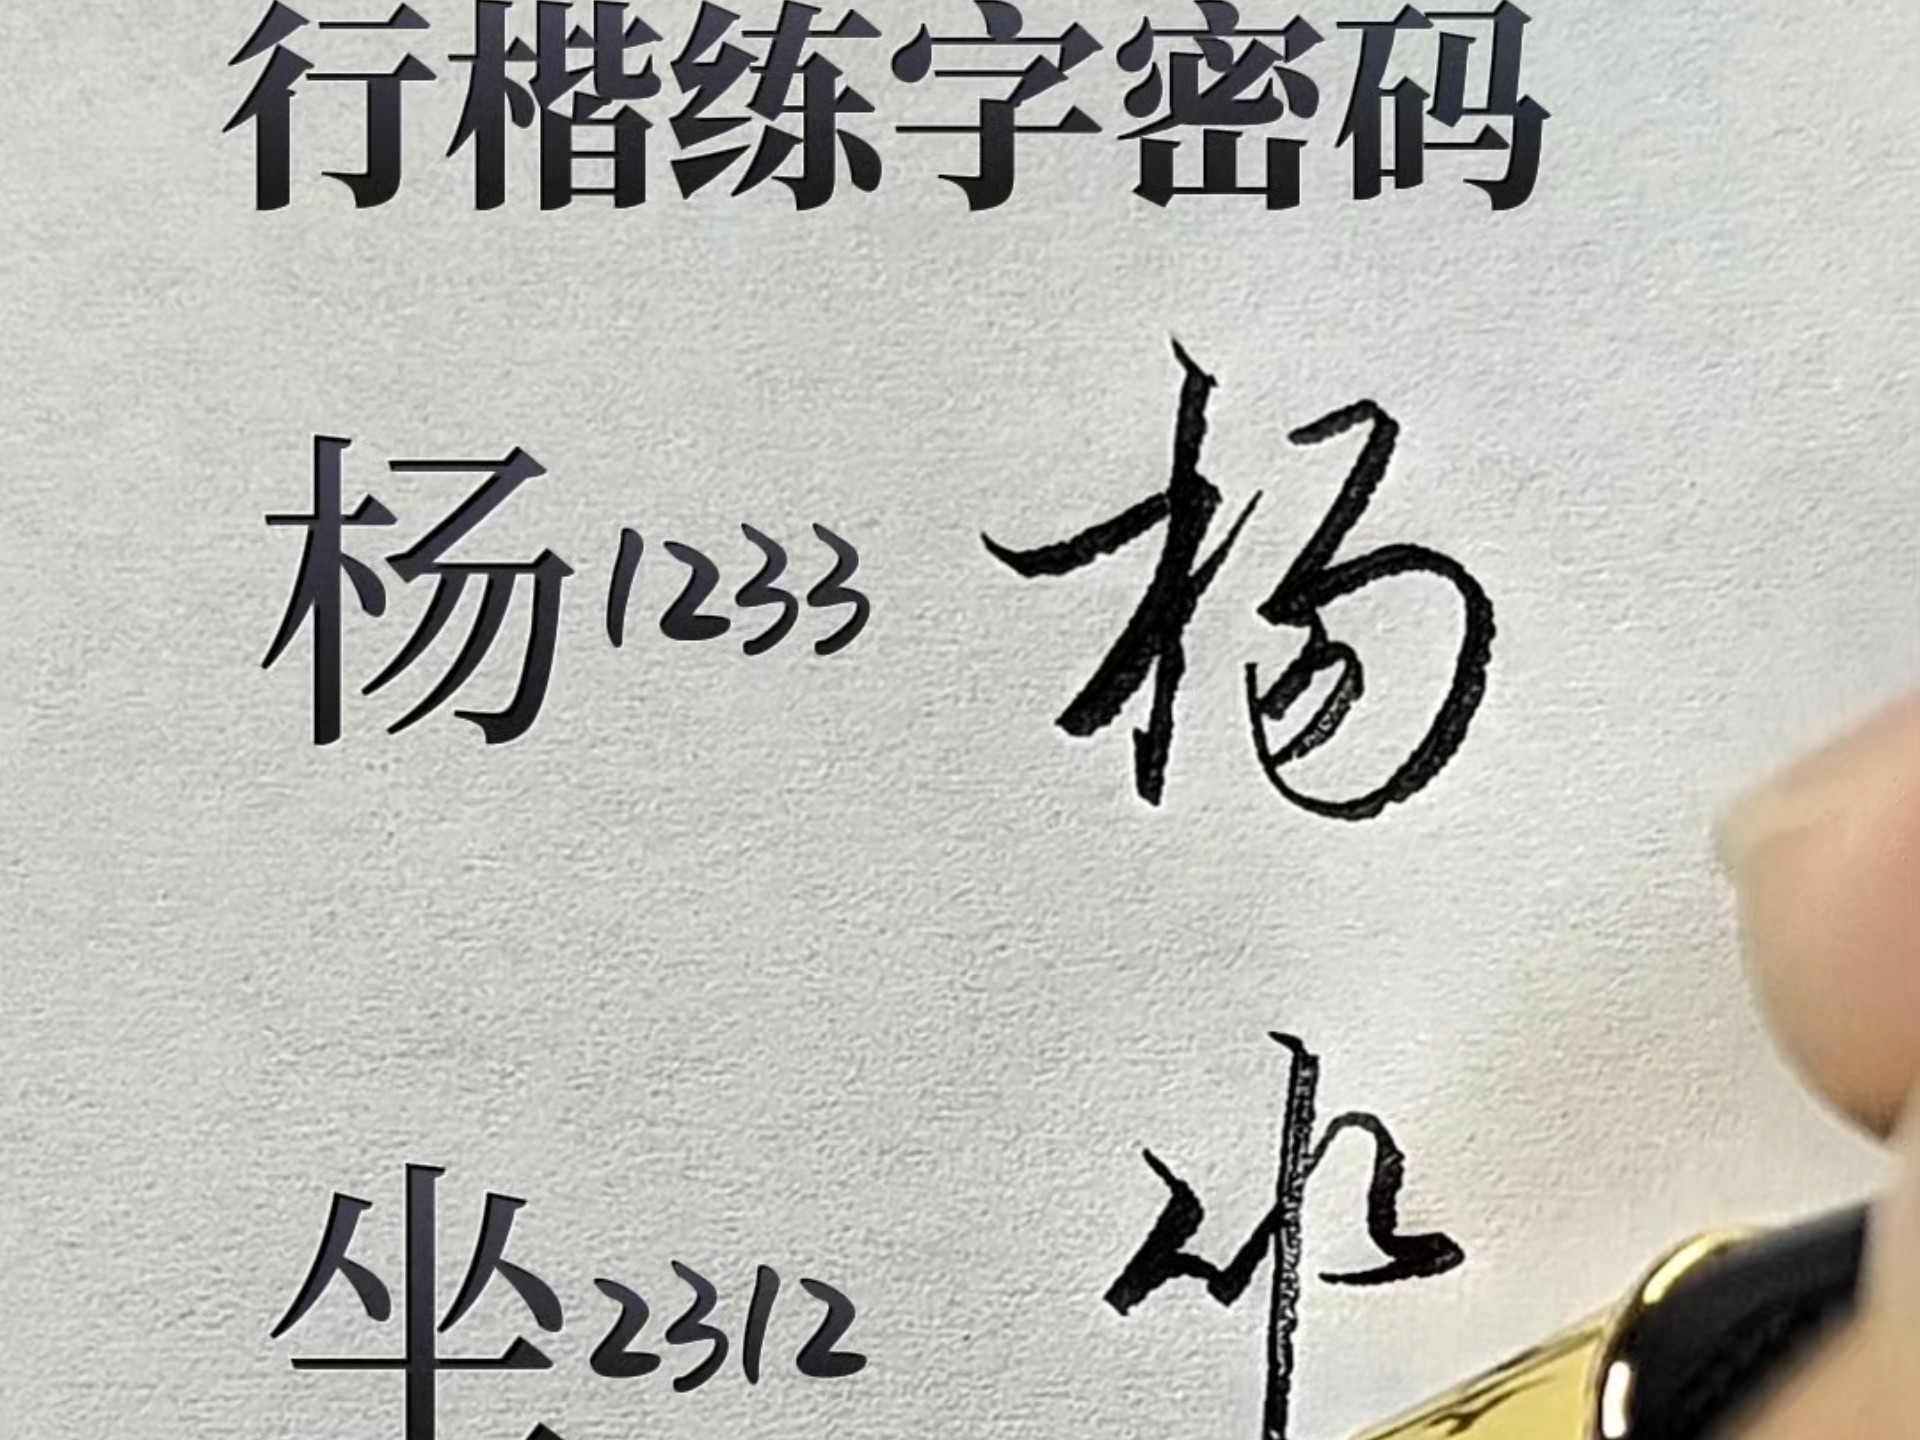 行楷练字密码
杨1233 杨
坐2312